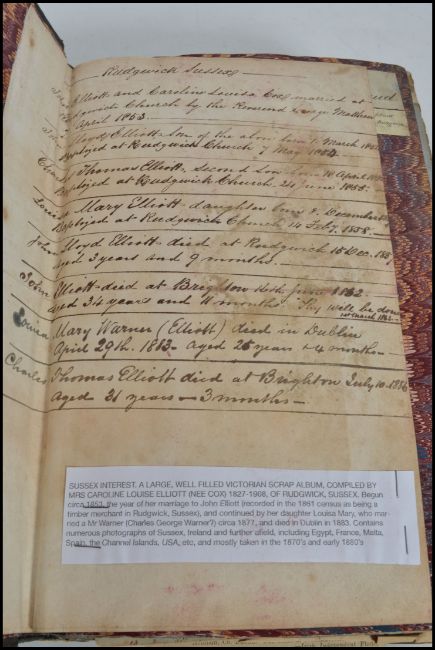 Rudgwick Sussex
Elliott and Caroline Louisa Cox married at
Church by the Reverend George Matthew
April 1853.
Lloyd Elliott Son of the above born March
Baptized at Rudgwick Church 7 May 1854.
Charles Thomas Elliott, Second Son born 10 April
Baptized at Rudgwick Church 24 June 1855.
Louisa Mary Elliott daughter born 8 December
Baptized at Rudgwick Church 14 Feby 1858.
John Lloyd Elliott died at Rudgwick 15 Dec.
aged 3 years and 9 months.
John Elliott died at Brighton June 1862
aged 34 years and 11 months. Thy will be done
Louisa Mary Warner (Elliott) died in Dublin
April 29th. 1883 Aged 25 years & 4 months
Charles Thomas Elliott died at Brighton July 10. 1886
aged 31 years 3 months
SUSSEX INTEREST. A LARGE, WELL FILLED VICTORIAN SCRAP ALBUM, COMPILED BY
MRS CAROLINE LOUISE ELLIOTT (NEE COX) 1827-1908, OF RUDGWICK, SUSSEX. Begun
circa 1853, the year of her marriage to John Elliott (recorded in the 1861 census as being a
timber merchant in Rudgwick, Sussex), and continued by her daughter Louisa Mary, who mar-
ried a Mr Warner (Charles George Warner?) circa 1877, and died in Dublin in 1883. Contains
numerous photographs of Sussex, Ireland and further afield, including Egypt, France, Malta,
Spain, the Channel Islands, USA, etc, and mostly taken in the 1870's and early 1880's